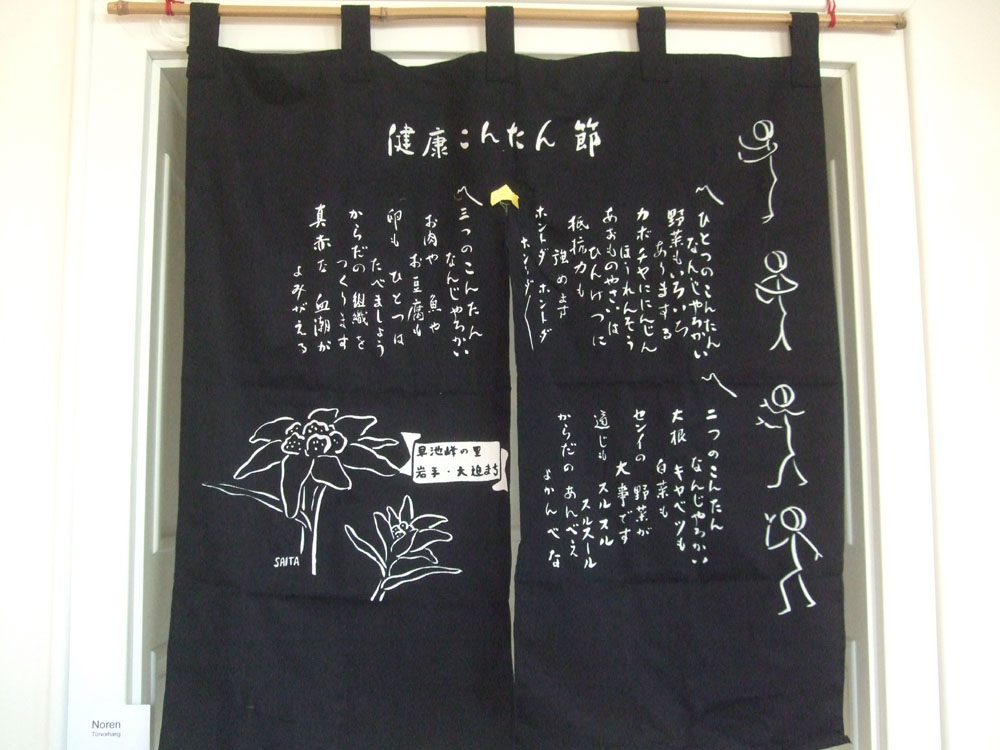 健康こんたん節
ひとつのこんたん
なんじゃちかい
野菜もいろいろ
あ〜まする
カボチャににんじん
ほうれんそう
あおものやさいは
ひんけつに
抵抗力も
強めます
ホントダ ホントダ
ホントダ
二つのこんたん
なんじゃちかい
大根 キャベツも
白菜も
センイの 野菜が
大事です
通じも スルスル
スルスール
からだの あんべえ
よかんべな
三つのこんたん
なんじゃちかい
お肉や 魚や
お豆腐も
卵も ひとつは
たべましょう
からだの 組織を
つく〜ます
真赤な 血潮が
よみがえる
早池峰の里
岩手・大迫まち
SAITA
Noren
Türvorhang